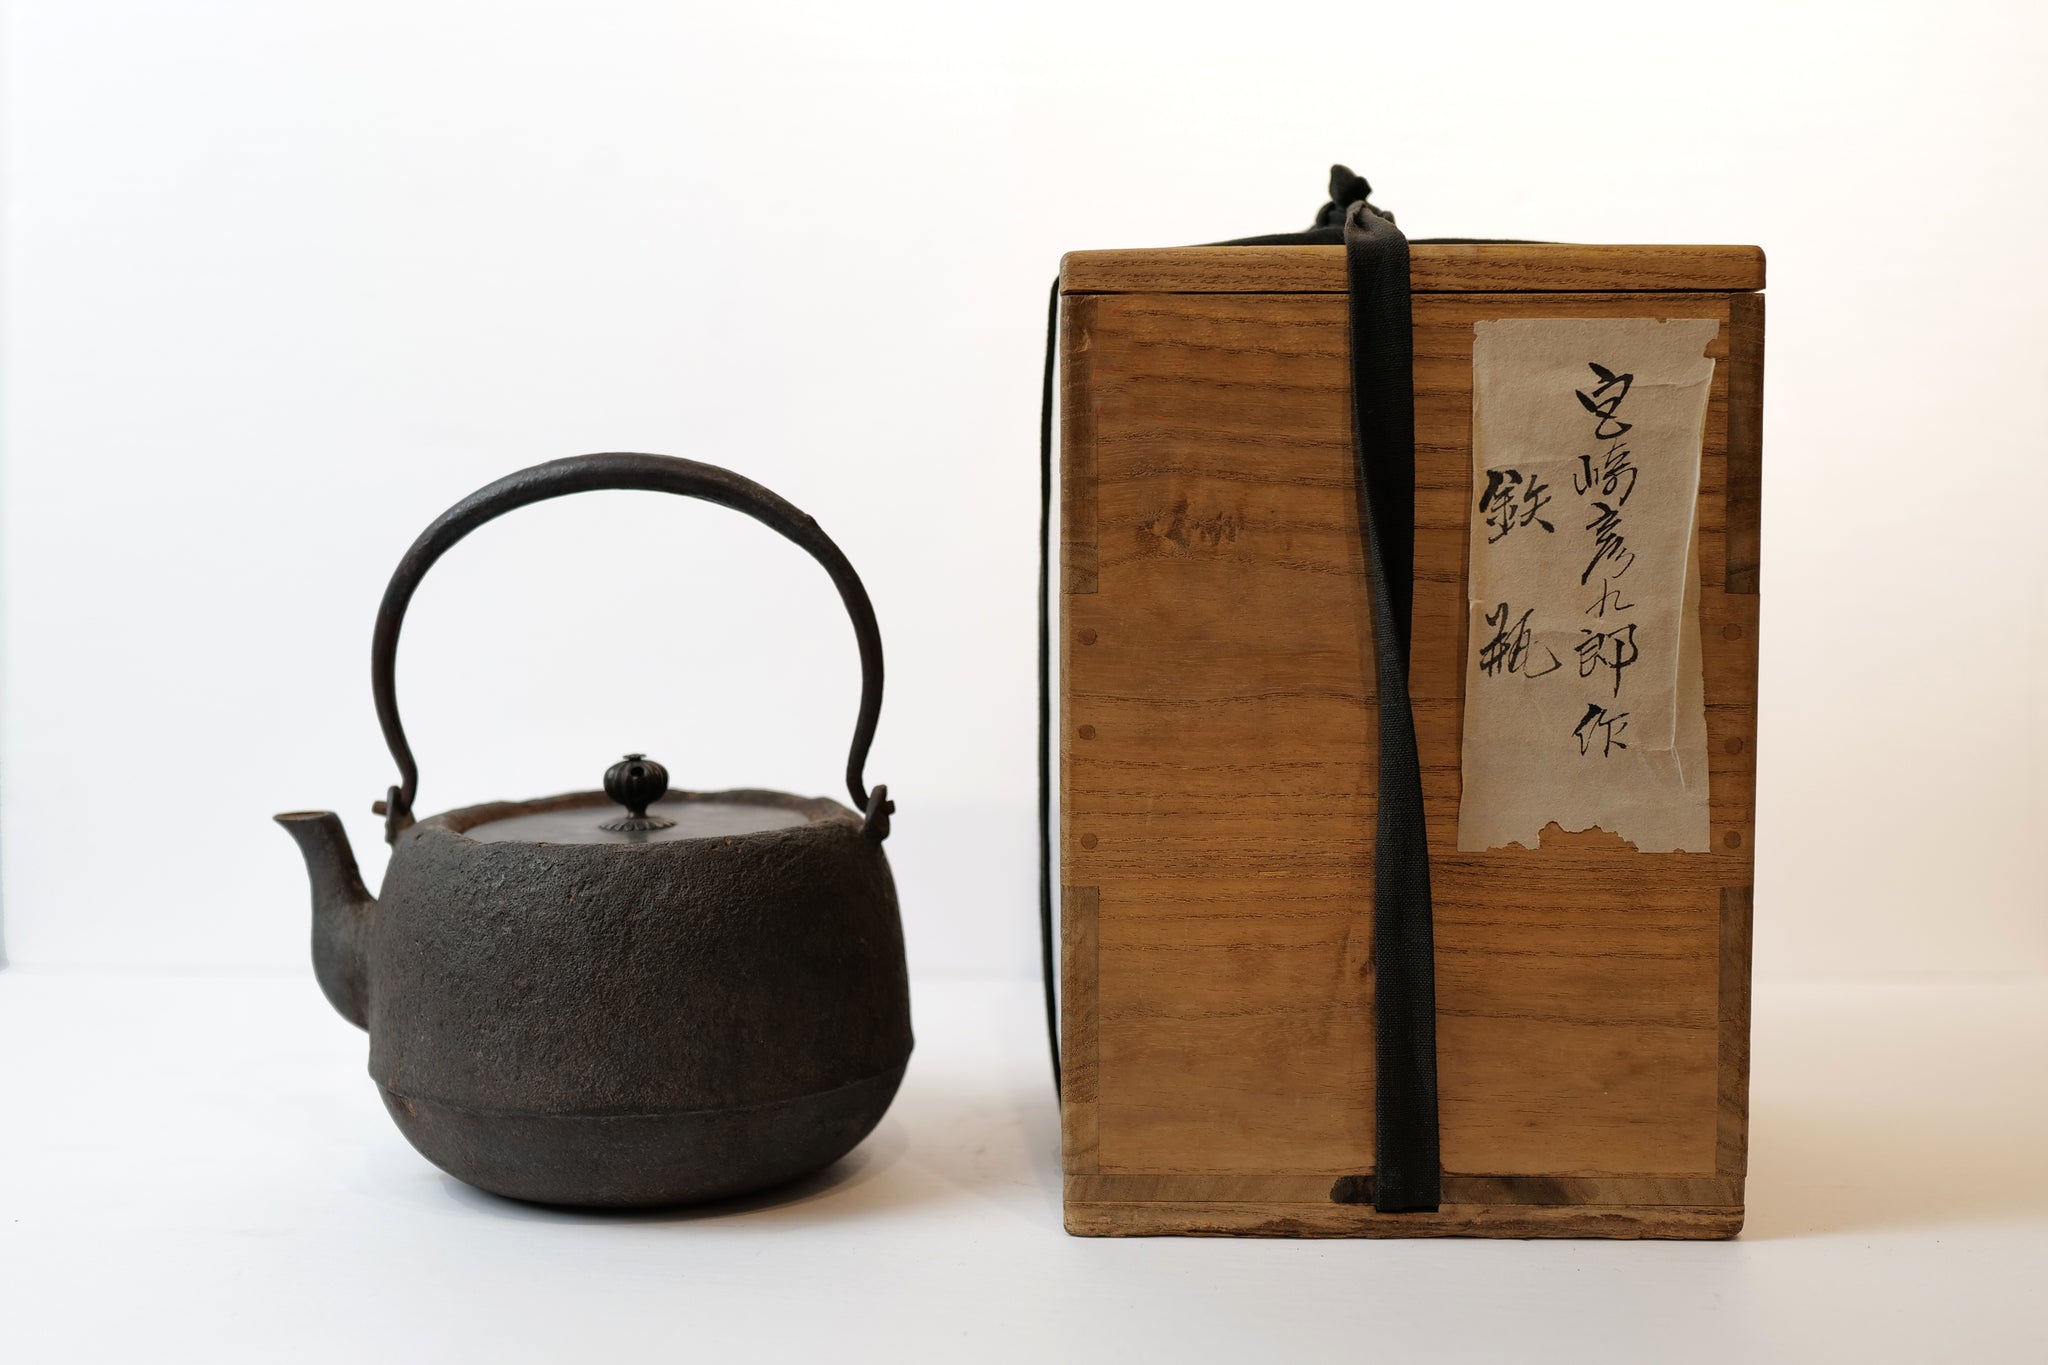 宮崎彦九郎作
鉄瓶